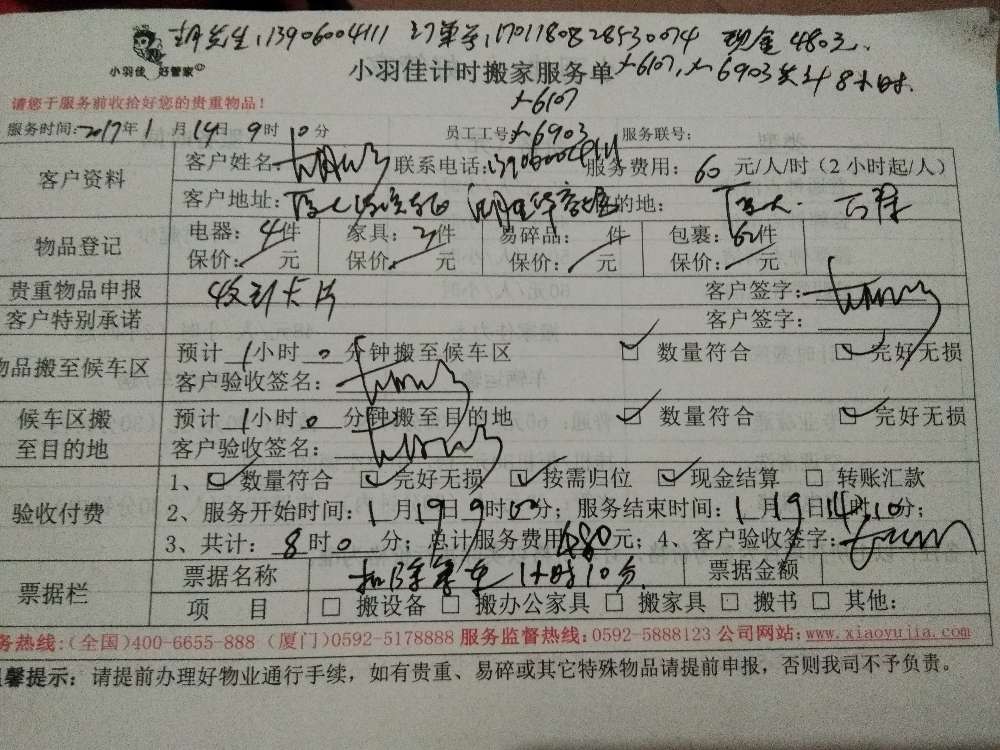 胡先生,13906004111 订单号,1701180828530074 现金480元.
小羽佳 好管家
小羽佳计时搬家服务单 大6107,大6903共计8小时.
大6107
请您于服务前收拾好您的贵重物品!
服务时间:2017年1月19日9时10分 员工工号:大6903 服务联号:
客户资料 客户姓名: 联系电话:13906004111 服务费用:60元/人/时(2小时起/人)
客户地址: 目的地:
物品登记 电器:4件 家具:2件 易碎品: 件 包裹:62件
保价: 元 保价: 元 保价: 元 保价: 元
贵重物品申报 收到卡片 客户签字:
客户特别承诺 客户签字:
物品搬至候车区 预计1小时0分钟搬至候车区 ☑数量符合 ☑完好无损
客户验收签名:
候车区搬至目的地 预计1小时0分钟搬至目的地 ☑数量符合 ☑完好无损
客户验收签名:
验收付费 1、☑数量符合 ☑完好无损 ☑按需归位 ☑现金结算 □转账汇款
2、服务开始时间:1月19日9时10分;服务结束时间:1月19日14时10分;
3、共计:8时0分;总计服务费用480元;4、客户验收签字:
票据栏 票据名称 扣除等车1小时10分. 票据金额
项 目 □搬设备 □搬办公家具 □搬家具 □搬书 □其他:
务热线:(全国)400-6655-888 (厦门)0592-5178888 服务监督热线:0592-5888123 公司网站:www.xiaoyujia.com
温馨提示:请提前办理好物业通行手续,如有贵重、易碎或其它特殊物品请提前申报,否则我司不予负责。